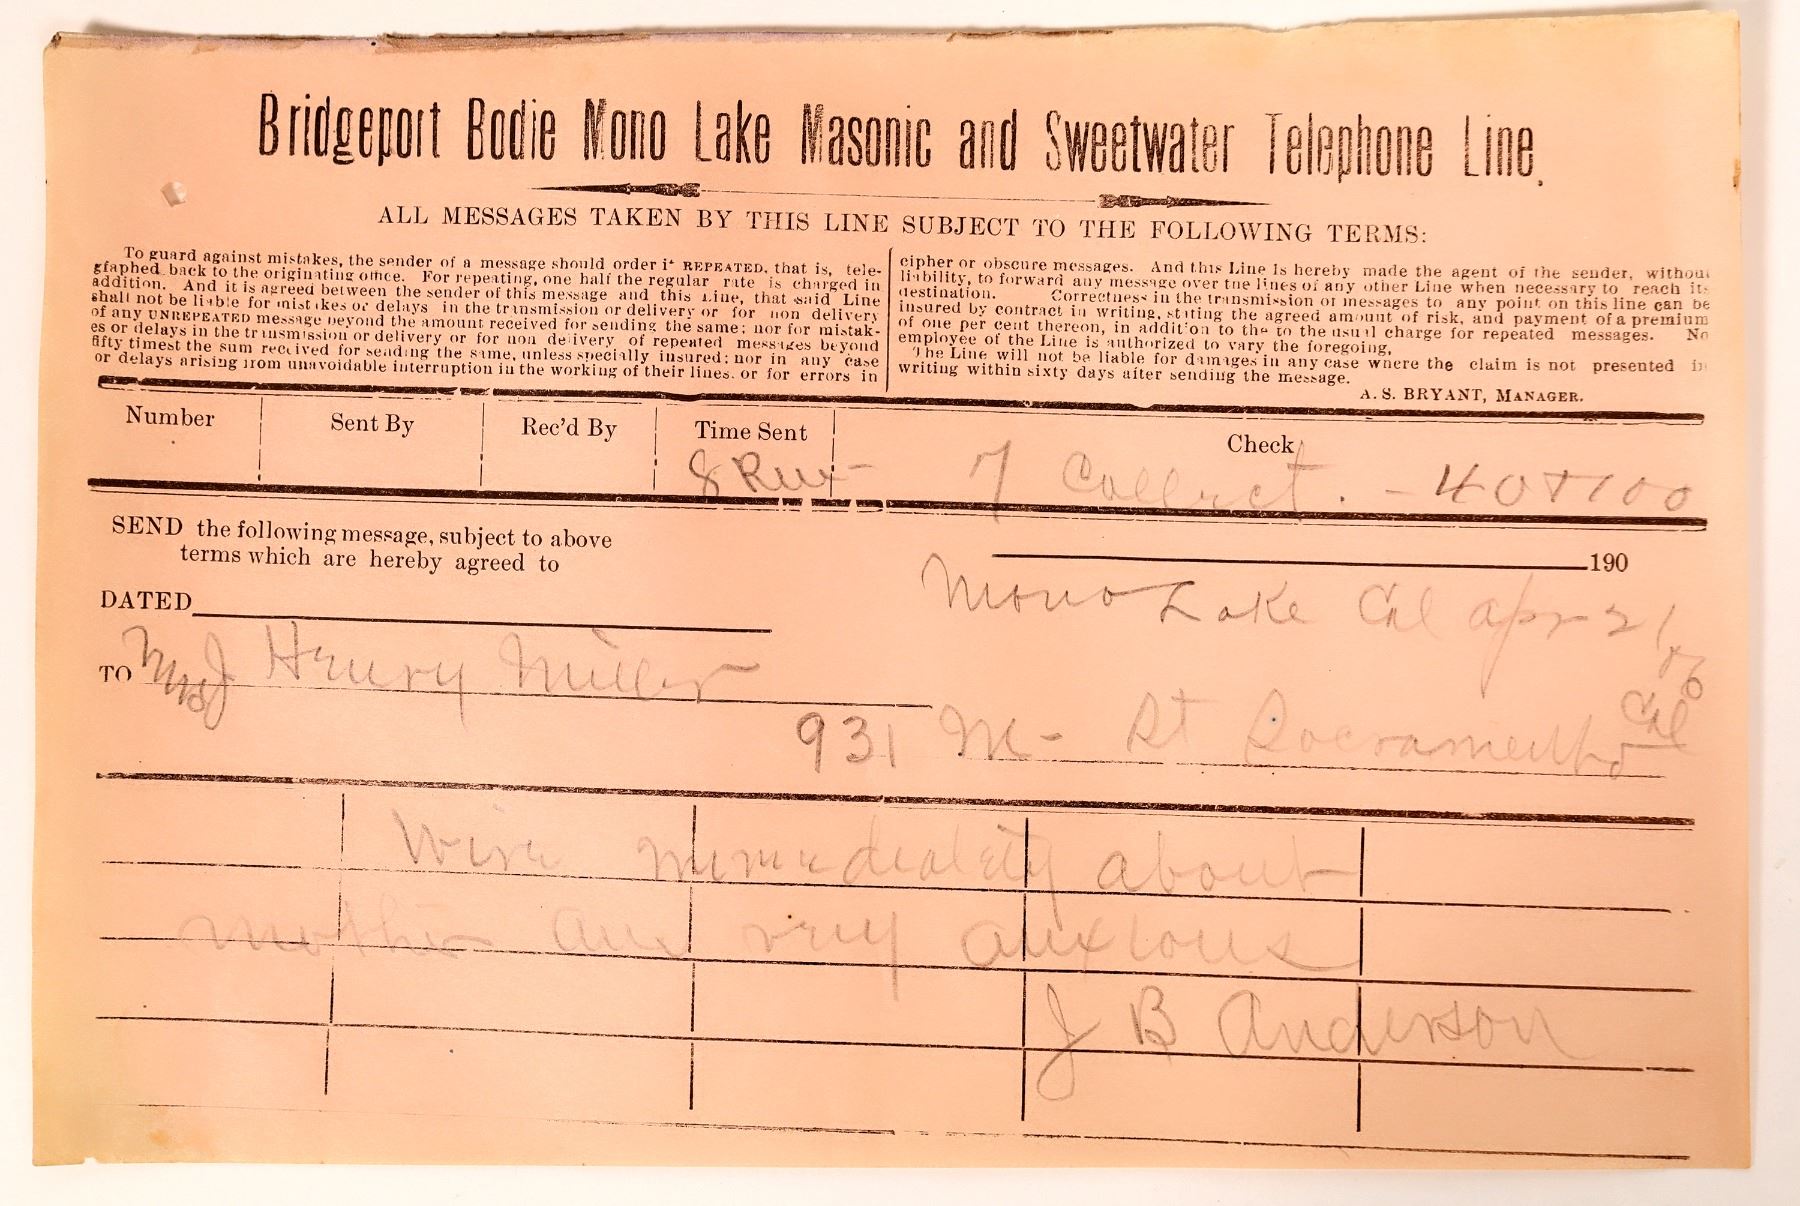 Bridgeport Bodie Mono Lake Masonic and Sweetwater Telephone Line.
ALL MESSAGES TAKEN BY THIS LINE SUBJECT TO THE FOLLOWING TERMS:
To guard against mistakes, the sender of a message should order it REPEATED, that is, tele-
gfaphed back to the originating office. For repeating, one half the regular rate is charged in
addition. And it is agreed between the sender of this message and this Line, that said Line
shall not be liable for mistakes or delays in the transmission or delivery or for non delivery
of any UNREPEATED message beyond the amount received for sending the same; nor for mistak-
es or delays in the transmission or delivery or for non delivery of repeated messages beyond
fifty timest the sum received for sending the same, unless specially insured; nor in any case
or delays arising from unavoidable interruption in the working of their lines. or for errors in
cipher or obscure messages. And this Line is hereby made the agent of the sender, without
liability, to forward any message over the lines of any other Line when necessary to reach its
destination. Correctness in the transmission of messages to any point on this line can be
insured by contract in writing, stating the agreed amount of risk, and payment of a premium
of one per cent thereon, in addition to the to the usual charge for repeated messages. No
employee of the Line is authorized to vary the foregoing.
The Line will not be liable for damages in any case where the claim is not presented in
writing within sixty days after sending the message.
A. S. BRYANT, MANAGER.
Number Sent By Rec'd By Time Sent Check
8 7 Collect. - 40 + 100
SEND the following message, subject to above
terms which are hereby agreed to
190
Mono Lake Cal Apr 21
06
DATED
TO Mrs J Henry Miller
931 M - St Sacramento Cal
Wire immediately about
mother am very anxious
J B Anderson